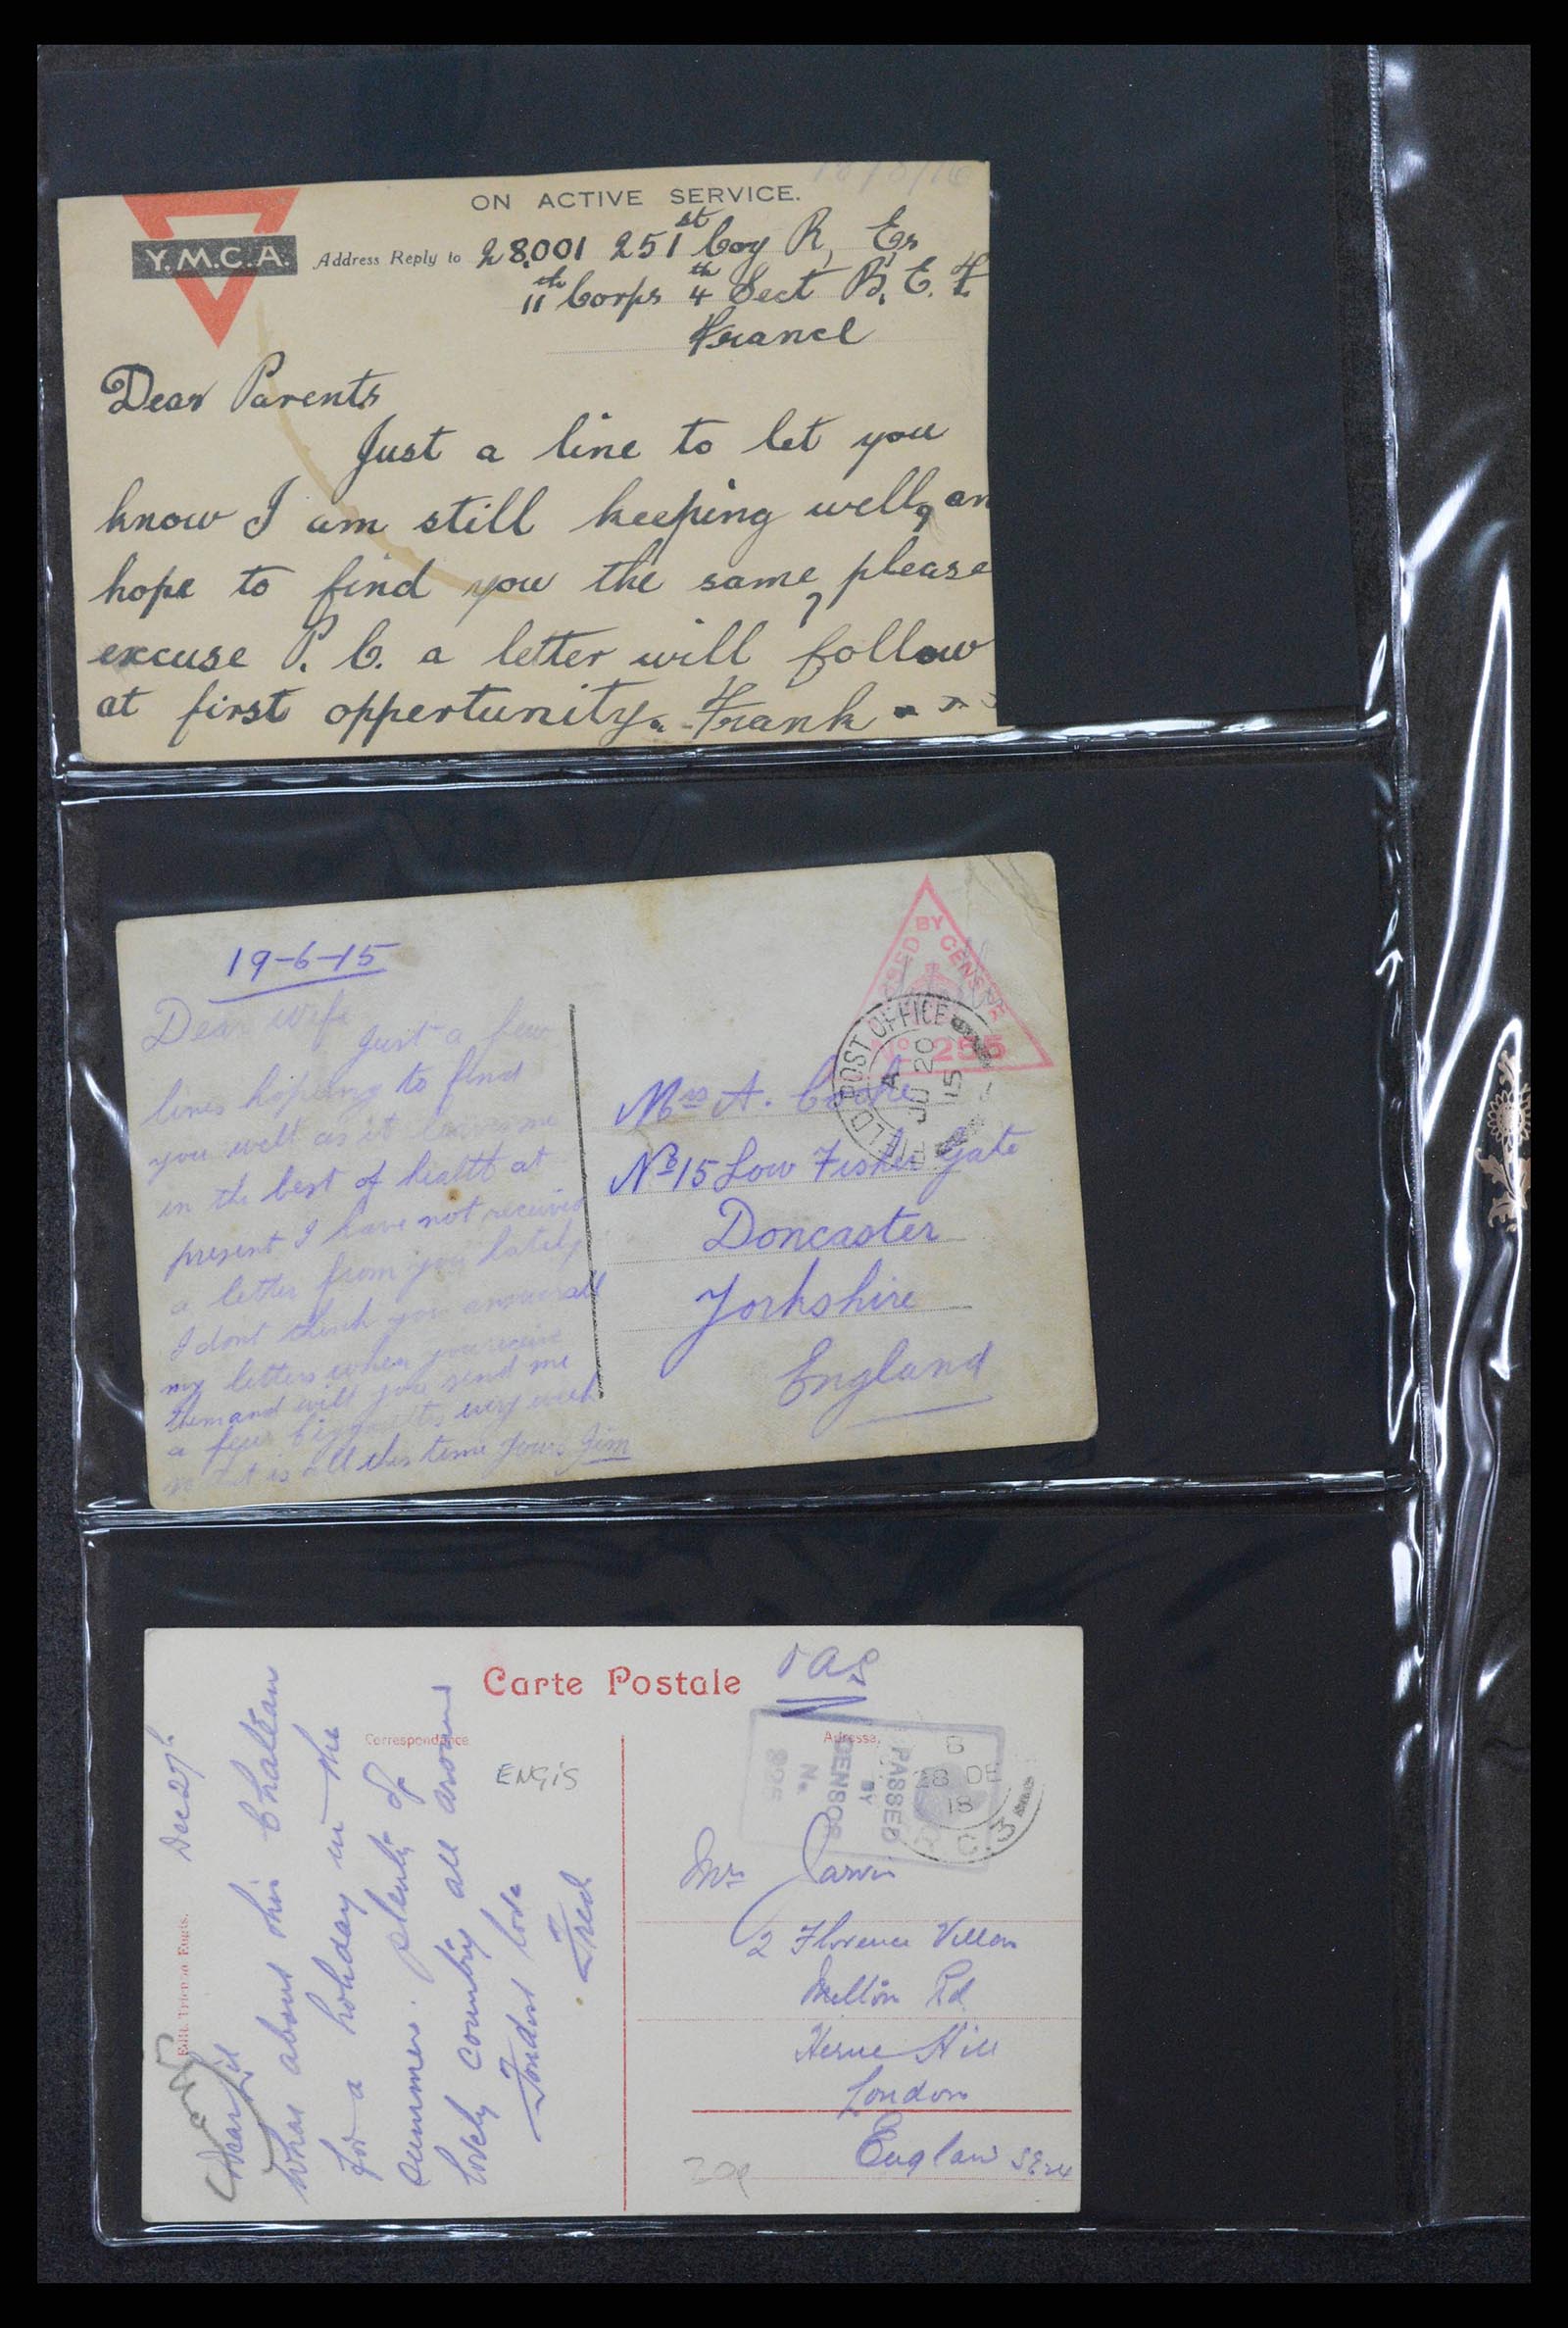 ON ACTIVE SERVICE.
Y.M.C.A.
Address Reply to 28001 251st Coy R, Es
11th Corps 4th Sect B. E. F.
France
Dear Parents
Just a line to let you
know I am still keeping well, an
hope to find you the same, please
excuse P. C. a letter will follow
at first oppertunity. Frank
19-6-15
Dear Wife
Just a few
lines hopeing to find
you well as it leaves me
in the best of health at
present I have not received
a letter from you lately
I dont think you answer all
my letters when you receive
them and will you send me
a few every week
that is all this time Yours Jim
BY CENSOR
No 255
FIELD POST OFFICE
A
JU 20
15
Mrs A. Cooke
No 15 Low Fisher Gate
Doncaster
Yorkshire
England
Carte Postale
OAS
Correspondance
Adresse.
ENGIS
PASSED
BY
CENSOR
No.
B
28 DE
18
C.3
Dec 27th
Dear
What about this Chateau
for a holiday in the
summer. plenty of
lovely country all around
Fondest love
Fred
Mrs Jarvis
2 Florence Villas
Milton Rd
Herne Hill
London
England SE24